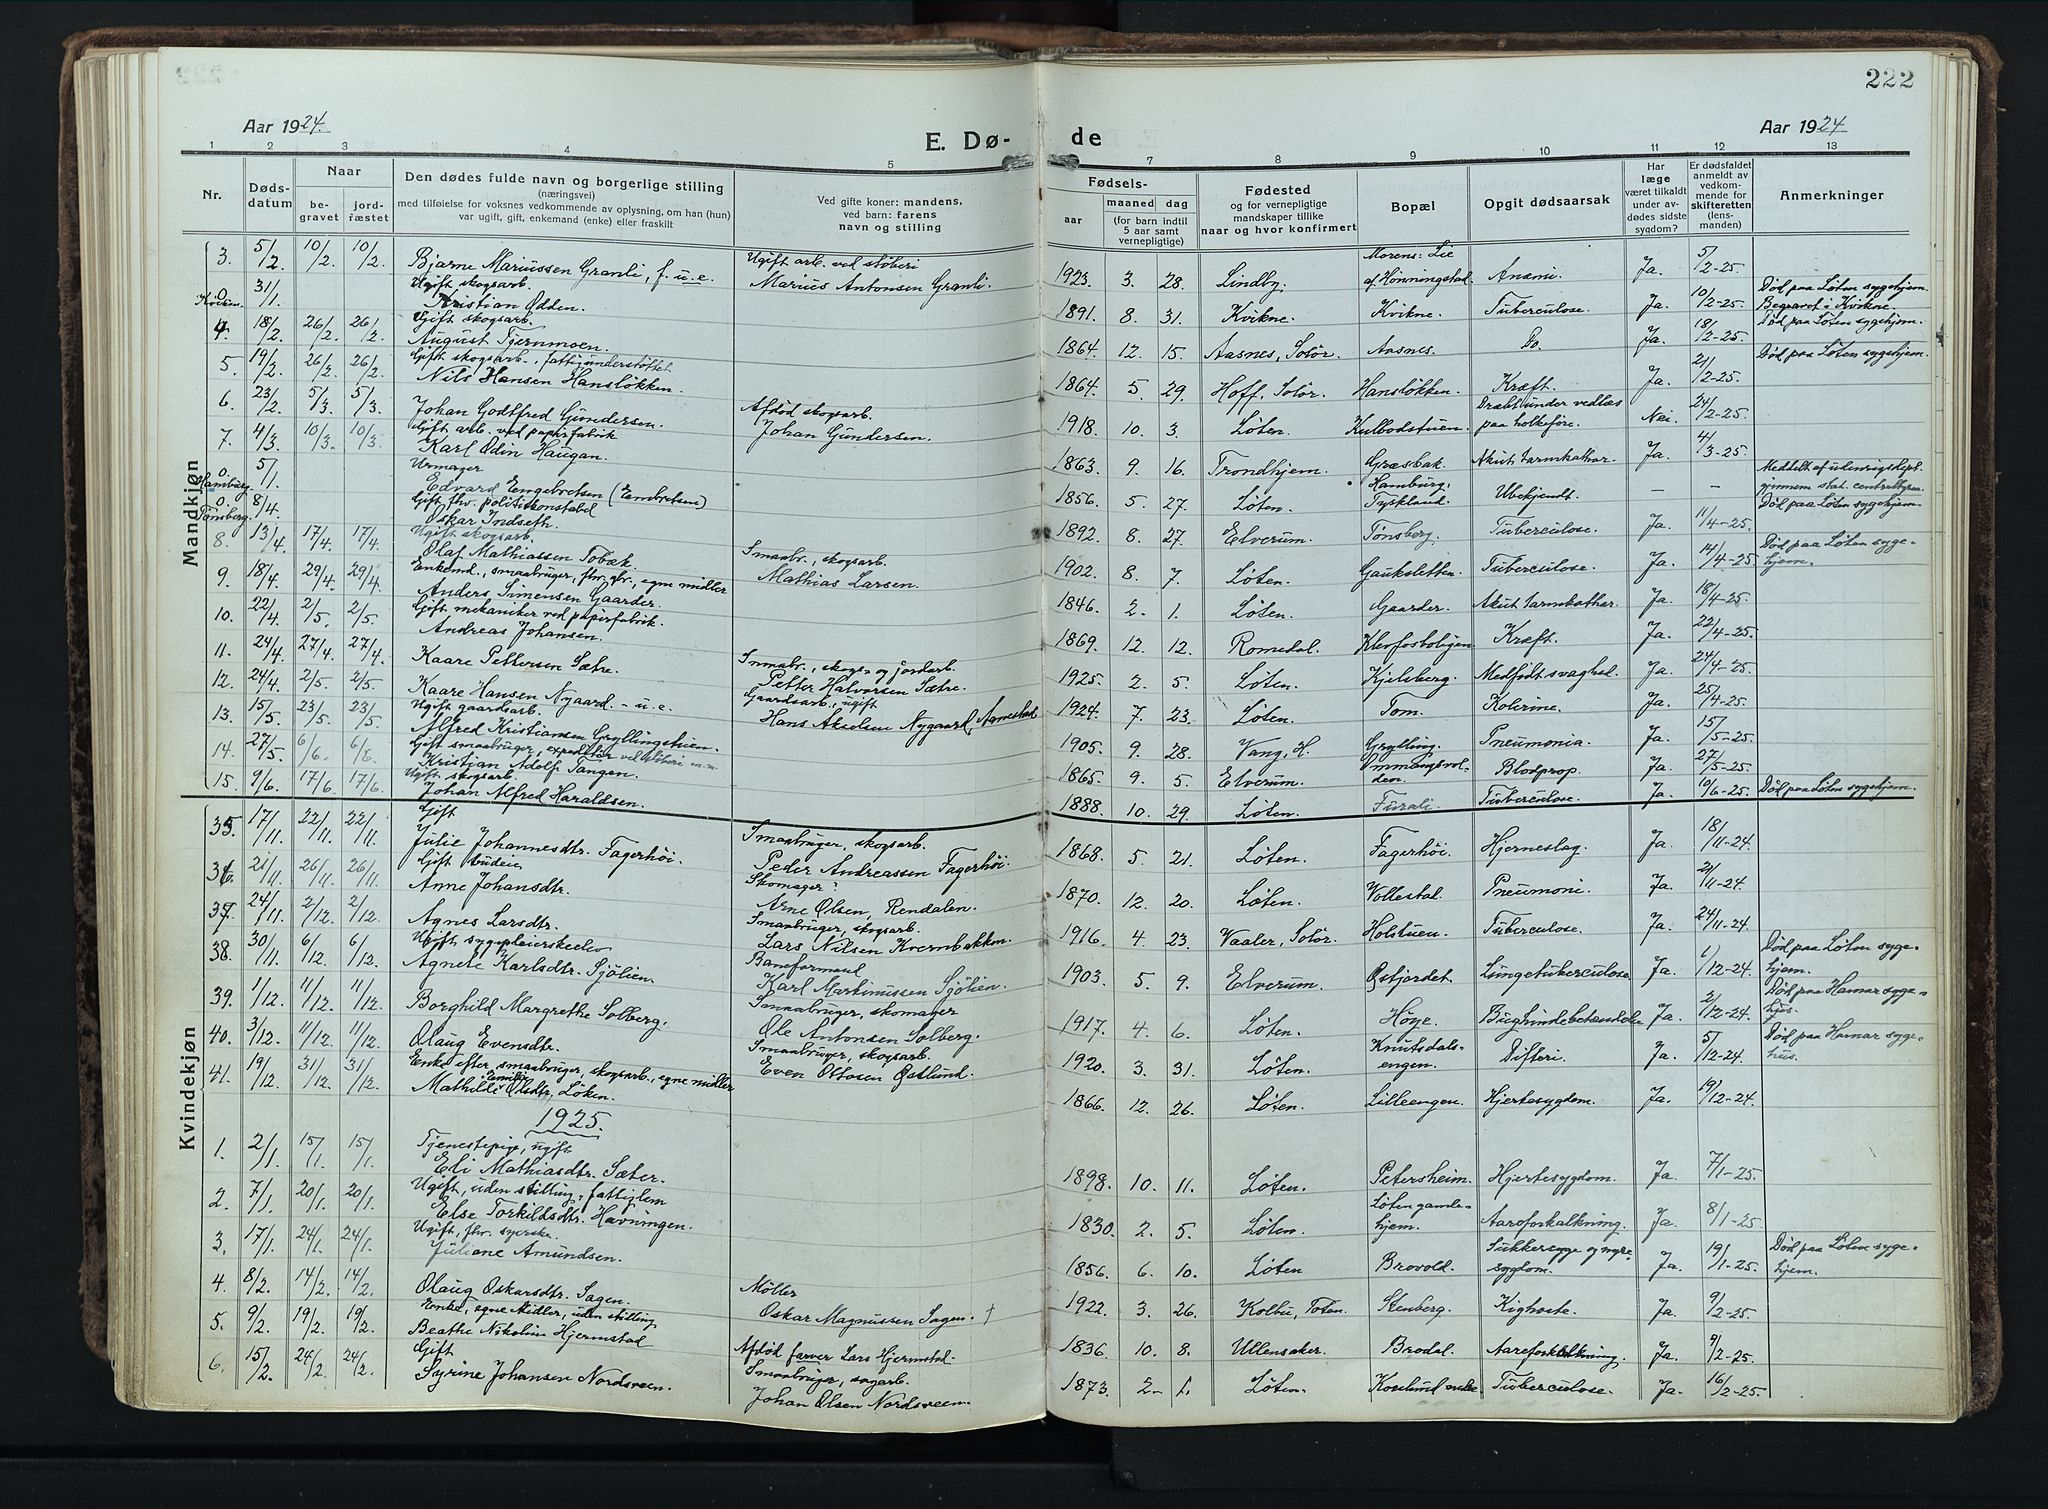 222
Aar 1924.
Aar 1924
E. Dø-
de
1 2 3 4 5 7 8 9 10 11 12 13
Nr.
Døds-
datum
Naar
be-
gravet
jord-
fæstet
Den dødes fulde navn og borgerlige stilling
(næringsvei)
med tilføielse for voksnes vedkommende av oplysning, om han (hun)
var ugift, gift, enkemand (enke) eller fraskilt
Ved gifte koner: mandens,
ved barn: farens
navn og stilling
Fødsels-
aar
maaned dag
(for barn indtil
5 aar samt
vernepligtige)
Fødested
og for vernepligtige
mandskaper tillike
naar og hvor konfirmert
Bopæl
Opgit dødsaarsak
Har
læge
været tilkaldt
under av-
dødes sidste
sygdom?
Er dødsfaldet
anmeldt av
vedkom-
mende for
skifteretten
(lens-
manden)
Anmerkninger
Mandkjøn
3. 5/2 10/2 10/2 Bjarne Mariussen Granli, f. u. e. Ugift arb. ved støberi Marius Antonsen Granli. 1923. 3. 28. Lindby. Morens: Lie af Hønningstad. Anæmi. Ja. 5/2-25.
0. Kvikne. 31/1 Ugift skogsarb. Kristian Odden. 1891. 8. 31. Kvikne. Kvikne. Tuberculose. Ja. 10/2-25. Død paa Løten sygehjem. Begravet i Kvikne.
4. 18/2 26/2. 26/2. Gift skogsarb. August Tjernmoen. 1864. 12. 15. Aasnes, Solör. Aasnes. Do. Ja. 18/2-25. Død paa Løten sygehjem.
5. 19/2 26/2. 26/2. Gift skogsarb., fattigunderstøttet Nils Hansen Hansløkken. 1864. 5. 29. Hoff, Solör. Hansløkken. Kræft. Ja. 21/2-25. Død paa Løten sygehjem.
6. 23/2 5/3 5/3. Johan Godtfred Gundersen. Afdød skogsarb. Johan Gundersen. 1918. 10. 3. Løten. Kulbodstuen. Dræbt under vedlæs paa holkeföre. Nei. 24/2-25.
7. 4/3. 10/3. 10/3. Gift arb. ved papirfabrik Karl Odin Haugan. 1863. 9. 16. Trondhjem. Græsbak. Akut tarmkathar. Ja. 4/3-25.
0. Hamburg. 5/1. Urmager Edvard Engebretsen (Embretsen) 1856. 5. 27. Løten. Hamburg, Tyskland. Ubekjendt. - - Meddelt af udenrigsdept. gjennem stat. centralbyraa.
0. Tønsberg. 8/4. Gift fhv. politikonstabel Oskar Indseth. 1892. 8. 27. Elverum. Tönsberg. Tuberculose. Ja. 11/4-25. Død paa Løten sygehjem.
8. 13/4. 17/4. 17/4. Ugift skogsarb. Olaf Mathiassen Tobæk. Smaabr., skogsarb. Mathias Larsen. 1902. 8. 7. Løten. Gaukslatten. Tuberculose. Ja. 14/4-25. Død paa Løten sygehjem.
9. 18/4. 29/4. 29/4. Enkemd., smaabruger, fhv. gbr., egne midler Anders Simensen Gaarder. 1846. 2. 1. Løten. Gaarder. Akut tarmkathar. Ja. 18/4-25.
10. 22/4. 2/5. 2/5. Gift mekaniker ved papirfabrik. Andreas Johansen. 1869. 12. 12. Romedal. Klevfosboligen Kræft. Ja. 22/4-25.
11. 24/4. 27/4. 27/4. Kaare Pettersen Sætre. Smaabr., skogs- og jordarb. Petter Halvorsen Sætre. 1925. 2. 5. Løten. Kjelsberg. Medfödt svaghed. Ja. 24/4-25.
12. 24/4. 2/5. 2/5. Kaare Hansen Nygaard - u. e. Gaardsarb., ugift Hans Akselsen Nygaard, Agnestad 1924. 7. 23. Løten. Tom. Kolerine. Ja. 25/4-25.
13. 15/5. 23/5. 23/5. Ugift gaardsarb. Alfred Kristiansen Gryllingstuen. 1905. 9. 28. Vang, H. Grylling. Pneumonia. Ja. 15/5-25.
14. 27/5. 6/6. 6/6. Gift smaabruger, expeditör ved støberi m. m. Kristian Adolf Tangen. 1865. 9. 5. Elverum. Ommangsvolden. Blodprop. Ja. 27/5-25.
15. 9/6. 17/6. 17/6. Ugift skogsarb. Johan Alfred Haraldsen. 1888. 10. 29. Løten. Furali. Tuberculose. Ja. 10/6-25. Død paa Løten sygehjem.
Kvindekjøn
35. 17/11. 22/11. 22/11. Gift Julie Johannesdtr. Fagerhöi. Smaabruger, skogsarb. Peder Andreassen Fagerhöi. 1868. 5. 21. Løten. Fagerhöi. Hjerneslag. Ja. 18/11-24.
36. 21/11. 26/11. 26/11. Gift budeie Anne Johansdtr. Skomager Arne Olsen, Rendalen. 1870. 12. 20. Løten. Vollestad. Pneumoni. Ja. 21/11-24.
37. 24/11. 2/12. 2/12. Agnes Larsdtr. Smaabruger, skogsarb. Lars Nilsen Kvernbakken. 1916. 4. 23. Vaaler, Solör. Holstuen. Tuberculose. Ja. 24/11-24.
38. 30/11. 6/12. 6/12. Ugift sygepleierskeelev Agnete Karlsdtr. Sjölien. Baneformand Karl Martinussen Sjölien. 1903. 5. 9. Elverum. Østjordet. Lungetuberculose. Ja. 1/12-24. Død paa Løten sygehjem.
39. 1/12. 11/12. 11/12. Borghild Margrethe Solberg. Smaabruger, skomager Ole Antonsen Solberg. 1917. 4. 6. Løten. Höye. Bughindebetændelse Ja. 2/12-24. Død paa Hamar sygehus.
40. 3/12. 11/12. 11/12. Olaug Evensdtr. Smaabruger, skogsarb. Even Ottosen Østlund. 1920. 3. 31. Løten. Knutsdalsengen. Difteri. Ja. 5/12-24. Død paa Hamar sygehus.
41. 19/12. 31/12. 31/12. Enke efter smaabruger, skogsarb., egne midler Mathilde Olsdtr. Löken. 1866. 12. 26. Løten. Lilleengen. Hjertesygdom. Ja. 19/12-24.
1925.
1. 2/1. 15/1. 15/1. Tjenestepige, ugift Eli Mathiasdtr. Sæter. 1898. 10. 11. Løten. Petersheim. Hjertesygdom. Ja. 7/1-25.
2. 7/1. 20/1. 20/1. Ugift, uden stilling, fattiglem Else Torkildsdtr. Hævningen. 1830. 2. 5. Løten. Løten gamlehjem. Aareforkalkning. Ja. 8/1-25.
3. 17/1. 24/1. 24/1. Ugift, fhv. syerske. Juliane Amundsen. 1856. 6. 10. Løten Brovold. Sukkersyge og nyresygdom. Ja. 19/1-25. Død paa Løten sygehjem.
4. 8/2. 14/2. 14/2. Olaug Oskarsdtr. Sagen. Möller Oskar Magnussen Sagen. † 1922. 3. 26. Kolbu, Toten. Stenberg. Kighoste. Ja. 9/2-25.
5. 9/2. 19/2. 19/2. Enke, egne midler, uden stilling Beathe Nikoline Hjermstad Afdød farver Lars Hjermstad. 1836. 10. 8. Ullensaker. Brodal. Aareforkalkning. Ja. 9/2-25.
6. 15/2. 24/2. 24/2. Gift Syrine Johansen Nordsveen. Smaabruger, sagarb. Johan Olsen Nordsveen. 1873. 2. 1. Løten. Tuberculose. Ja. 16/2-25.